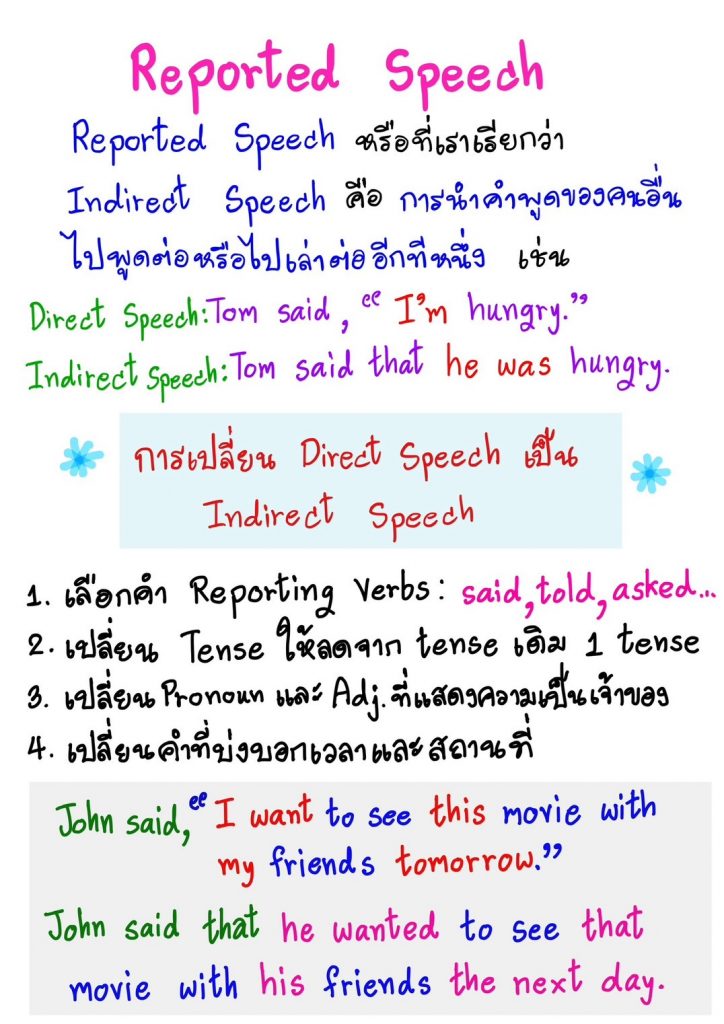 Reported Speech
Reported Speech หรือที่เราเรียกว่า
Indirect Speech คือ การนำคำพูดของคนอื่น
ไปพูดต่อหรือไปเล่าต่ออีกทีหนึ่ง เช่น
Direct Speech: Tom said, “I'm hungry.”
Indirect Speech: Tom said that he was hungry.
การเปลี่ยน Direct Speech เป็น
Indirect Speech
1. เลือกคำ Reporting Verbs: said, told, asked...
2. เปลี่ยน Tense ให้ลดจาก tense เดิม 1 tense
3. เปลี่ยน Pronoun และ Adj. ที่แสดงความเป็นเจ้าของ
4. เปลี่ยนคำที่บ่งบอกเวลาและสถานที่
John said, “I want to see this movie with
my friends tomorrow.”
John said that he wanted to see that
movie with his friends the next day.